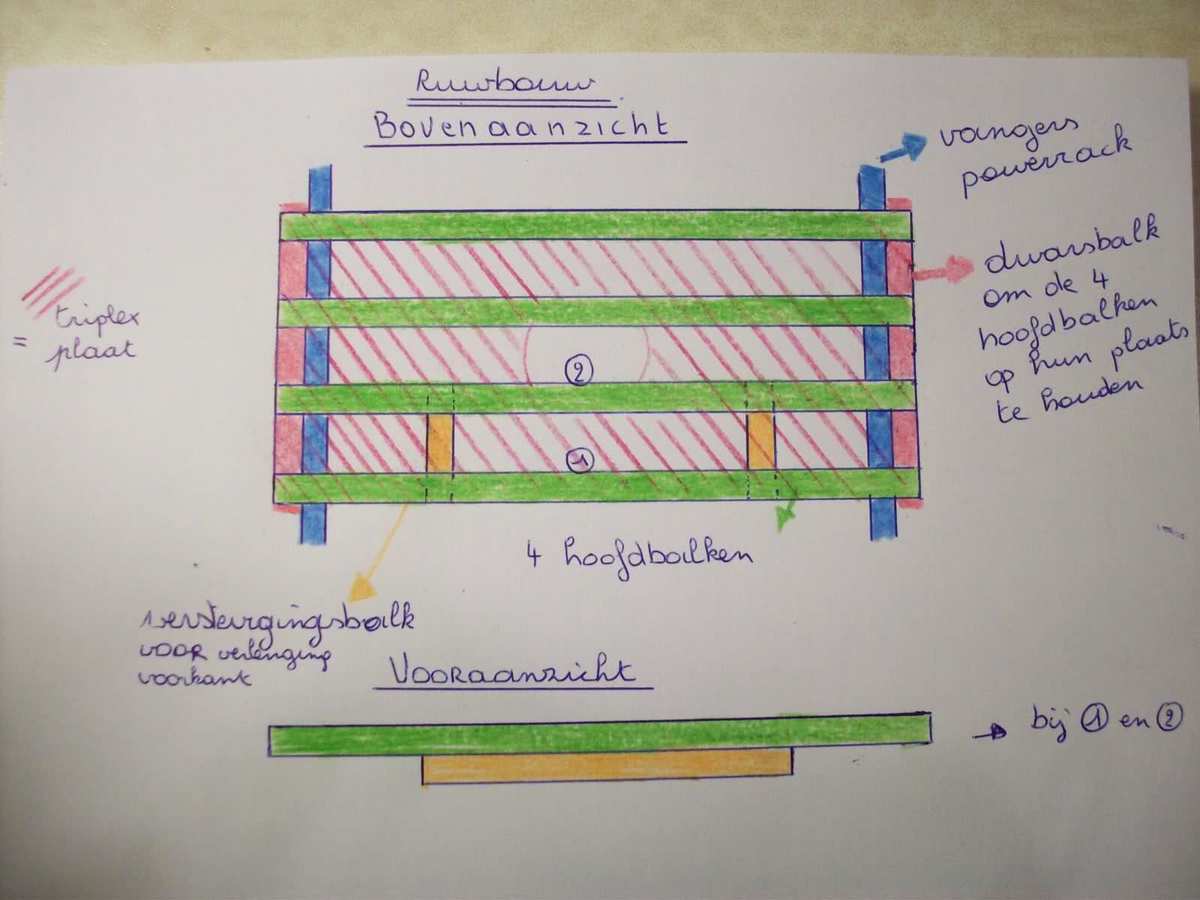 Ruwbouw
Bovenaanzicht
vangers
powerrack
dwarsbalk
om de 4
hoofdbalken
op hun plaats
te houden
=
triplex
plaat
2
1
4 hoofdbalken
verstevigingsbalk
voor verlenging
voorkant
Vooraanzicht
bij 1 en 2